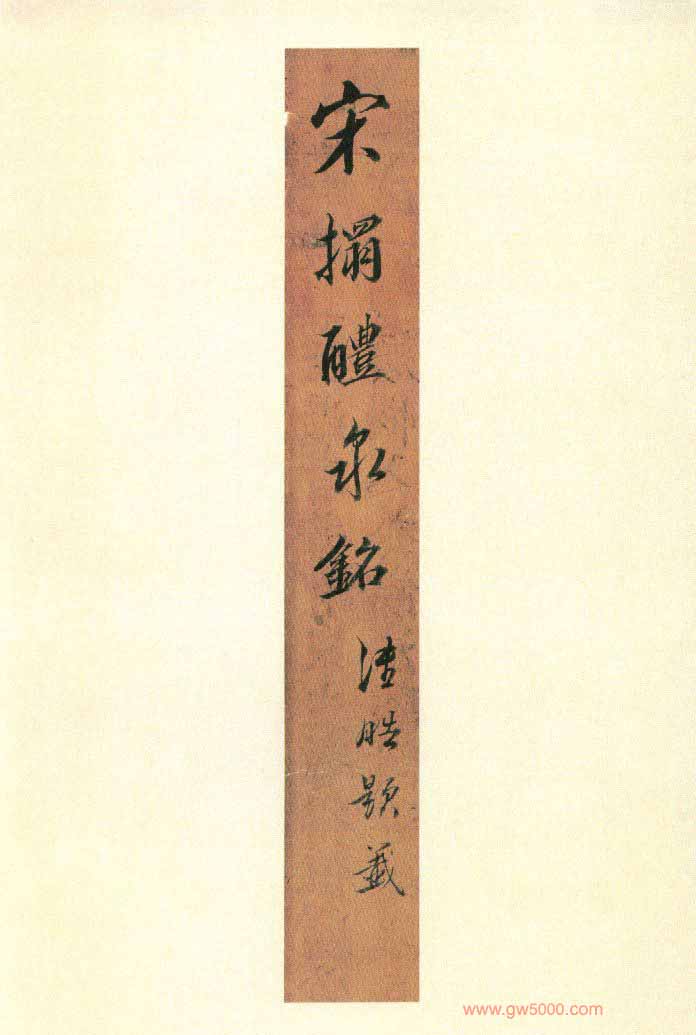 宋搨醴泉銘
題籤
www.gw5000.com